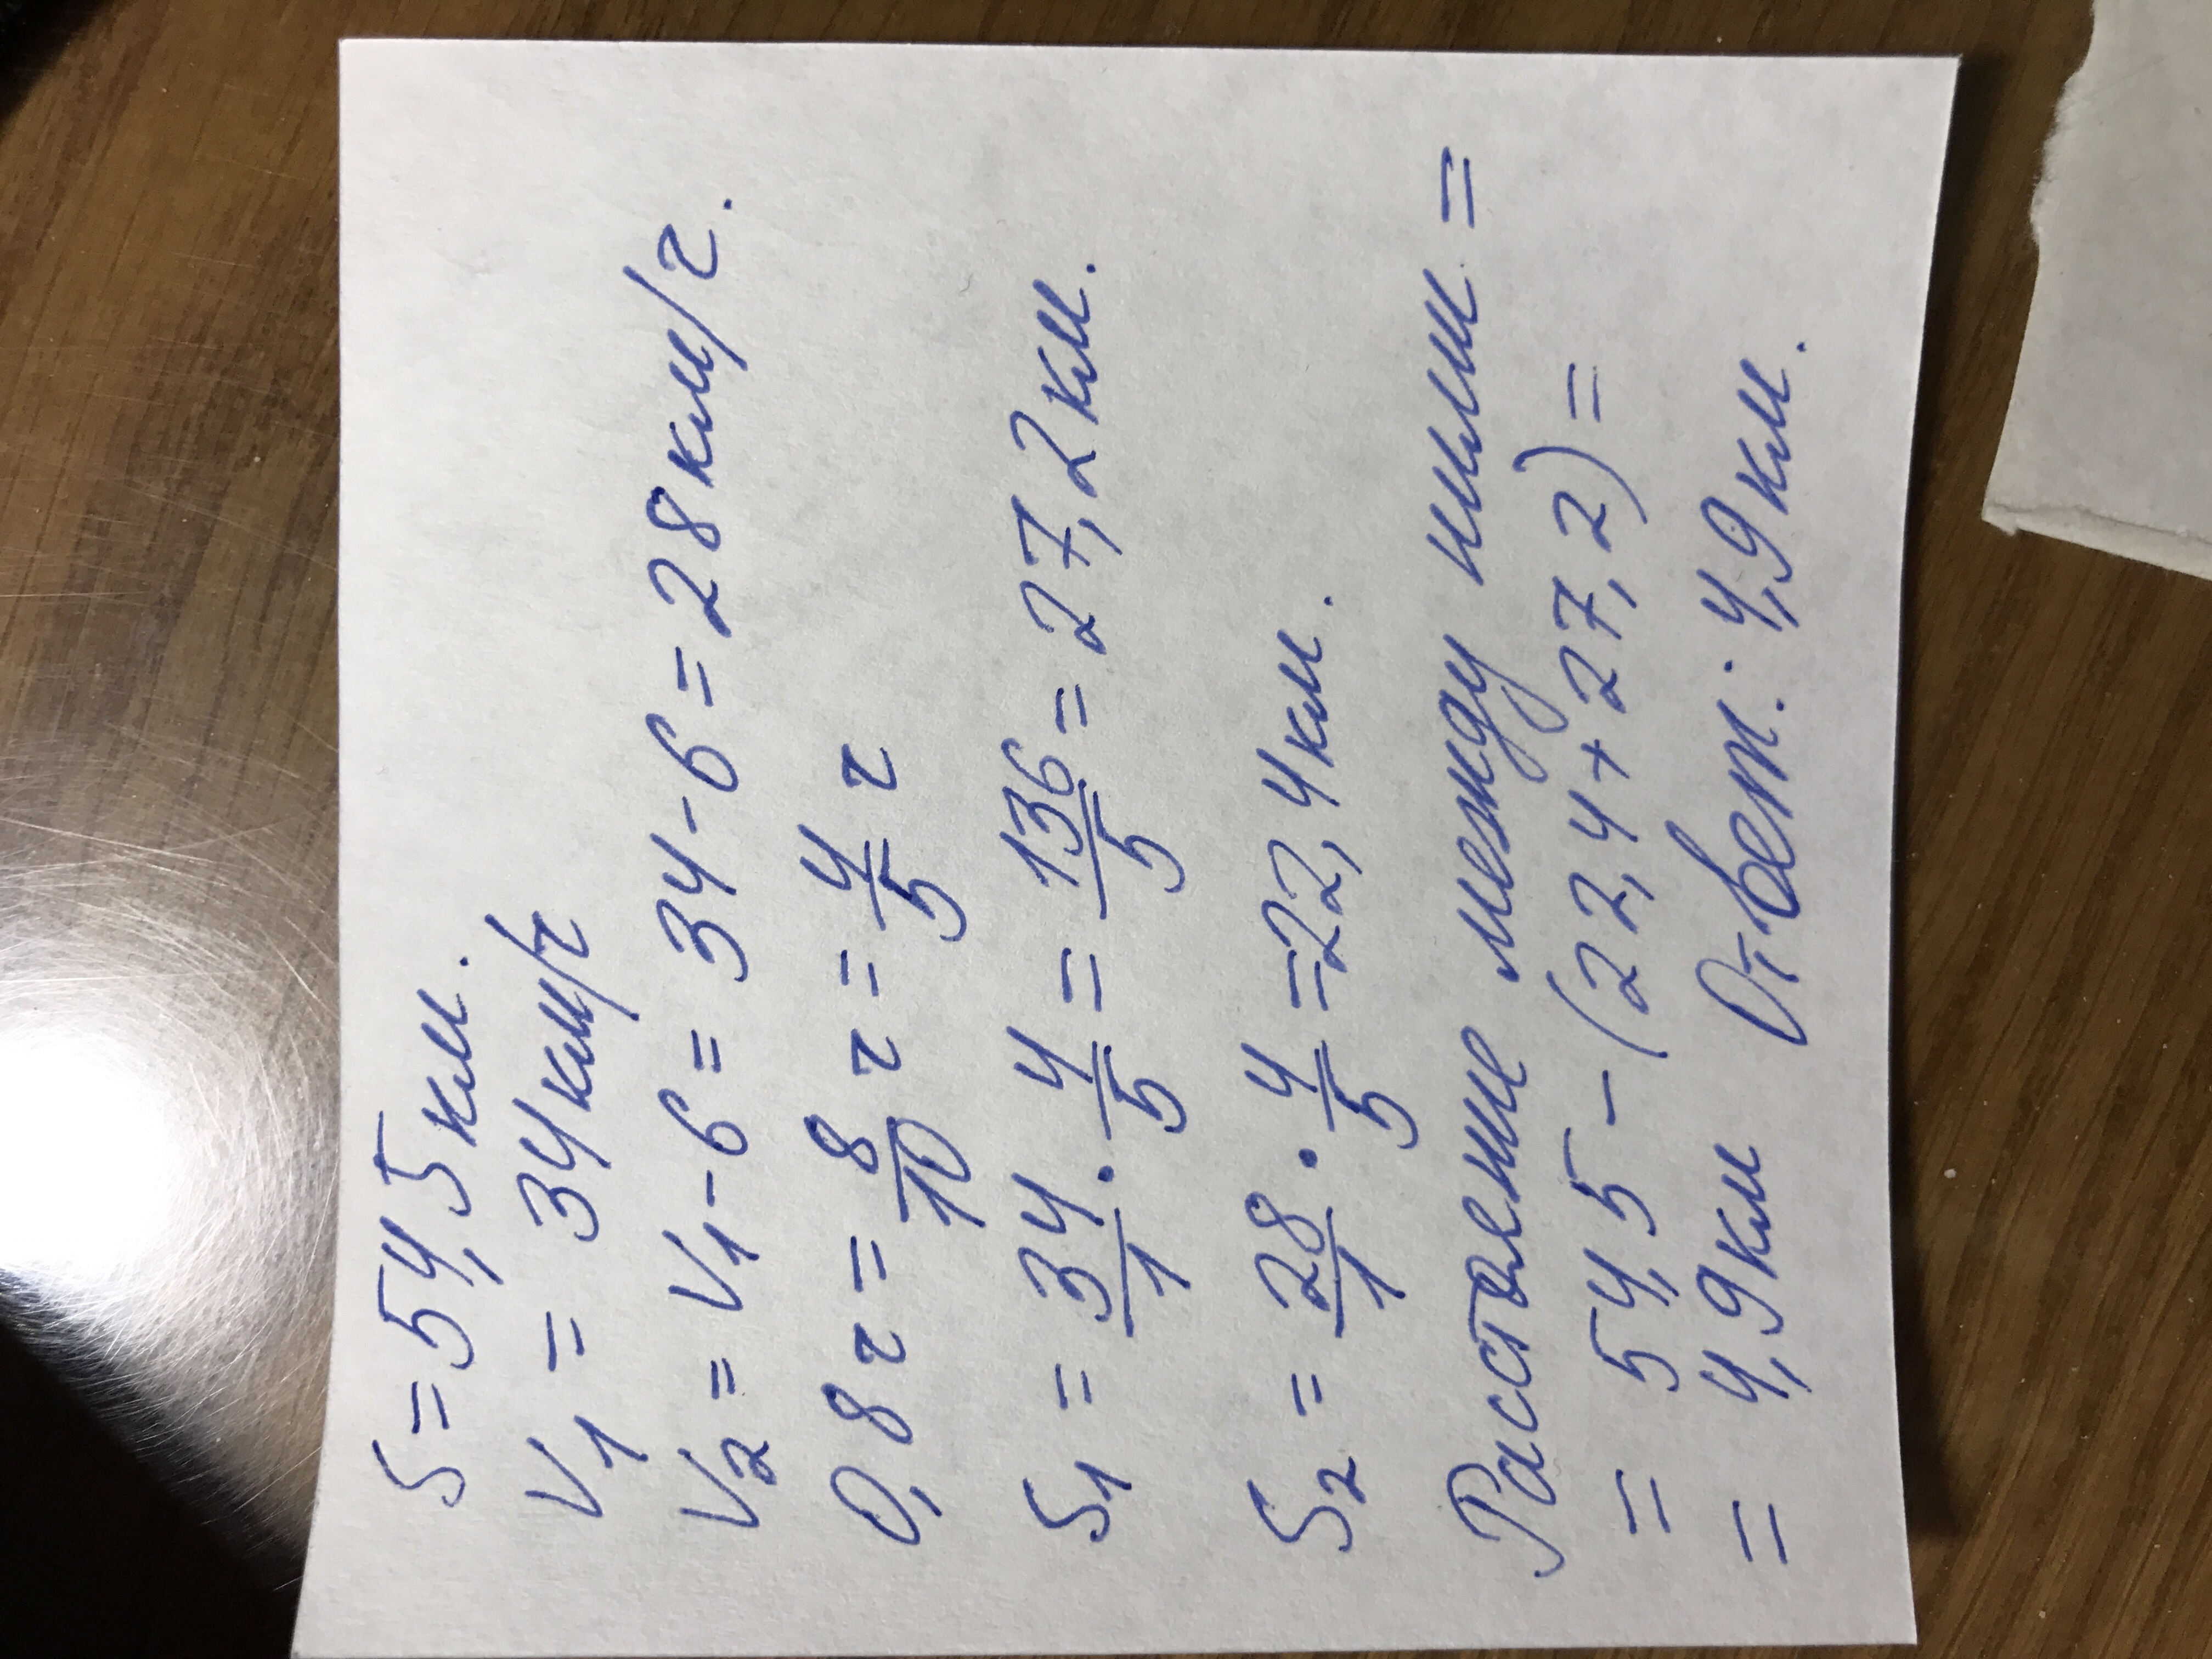 S = 54,5 км.
V₁ = 34 км/ч
V₂ = V₁ - 6 = 34 - 6 = 28 км/ч.
0,8 ч = 8/10 ч = 4/5 ч
S₁ = 34/1 · 4/5 = 136/5 = 27,2 км.
S₂ = 28/1 · 4/5 = 22,4 км.
Расстояние между ними =
= 54,5 - (22,4 + 27,2) =
= 4,9 км Ответ: 4,9 км.